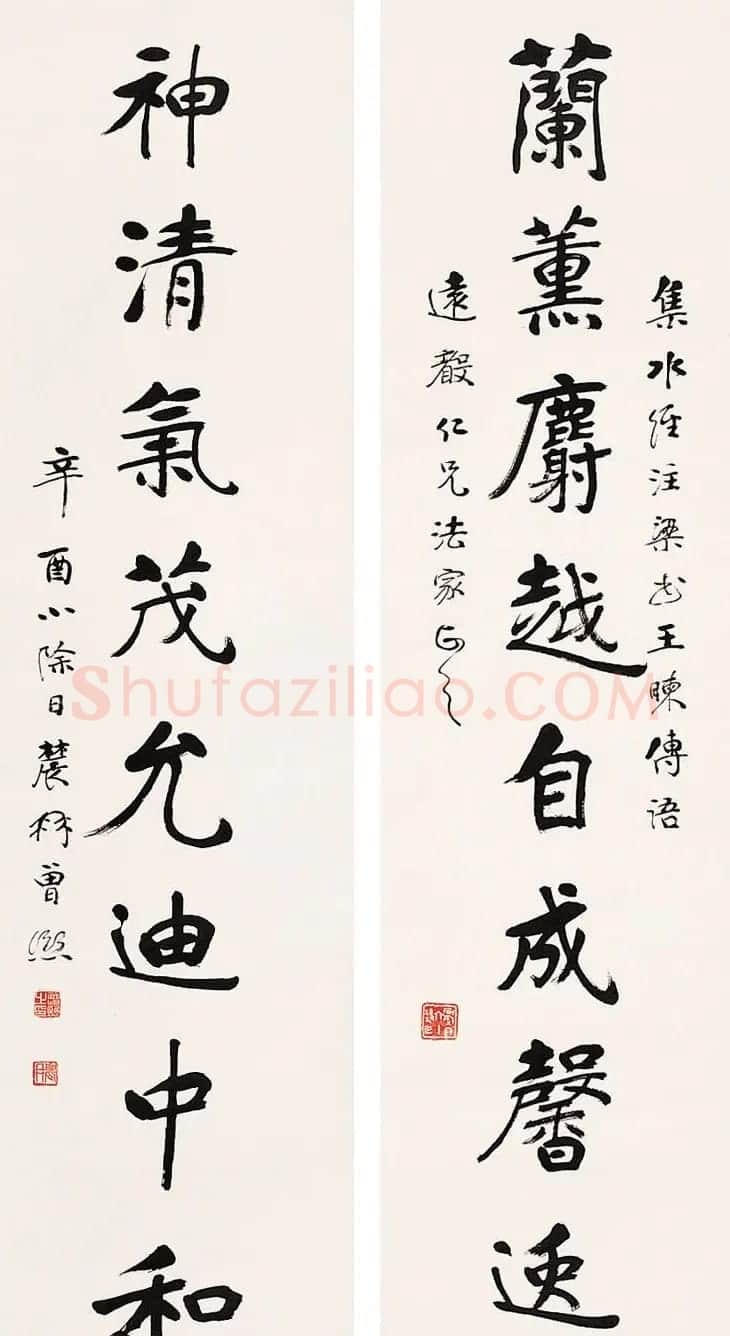 集水經注梁書王暕傳語
蘭薰麝越自成馨逸
遠仁兄法家正之
神清氣茂允迪中和
辛酉小除日農髯曾熙
Shufaziliao.COM